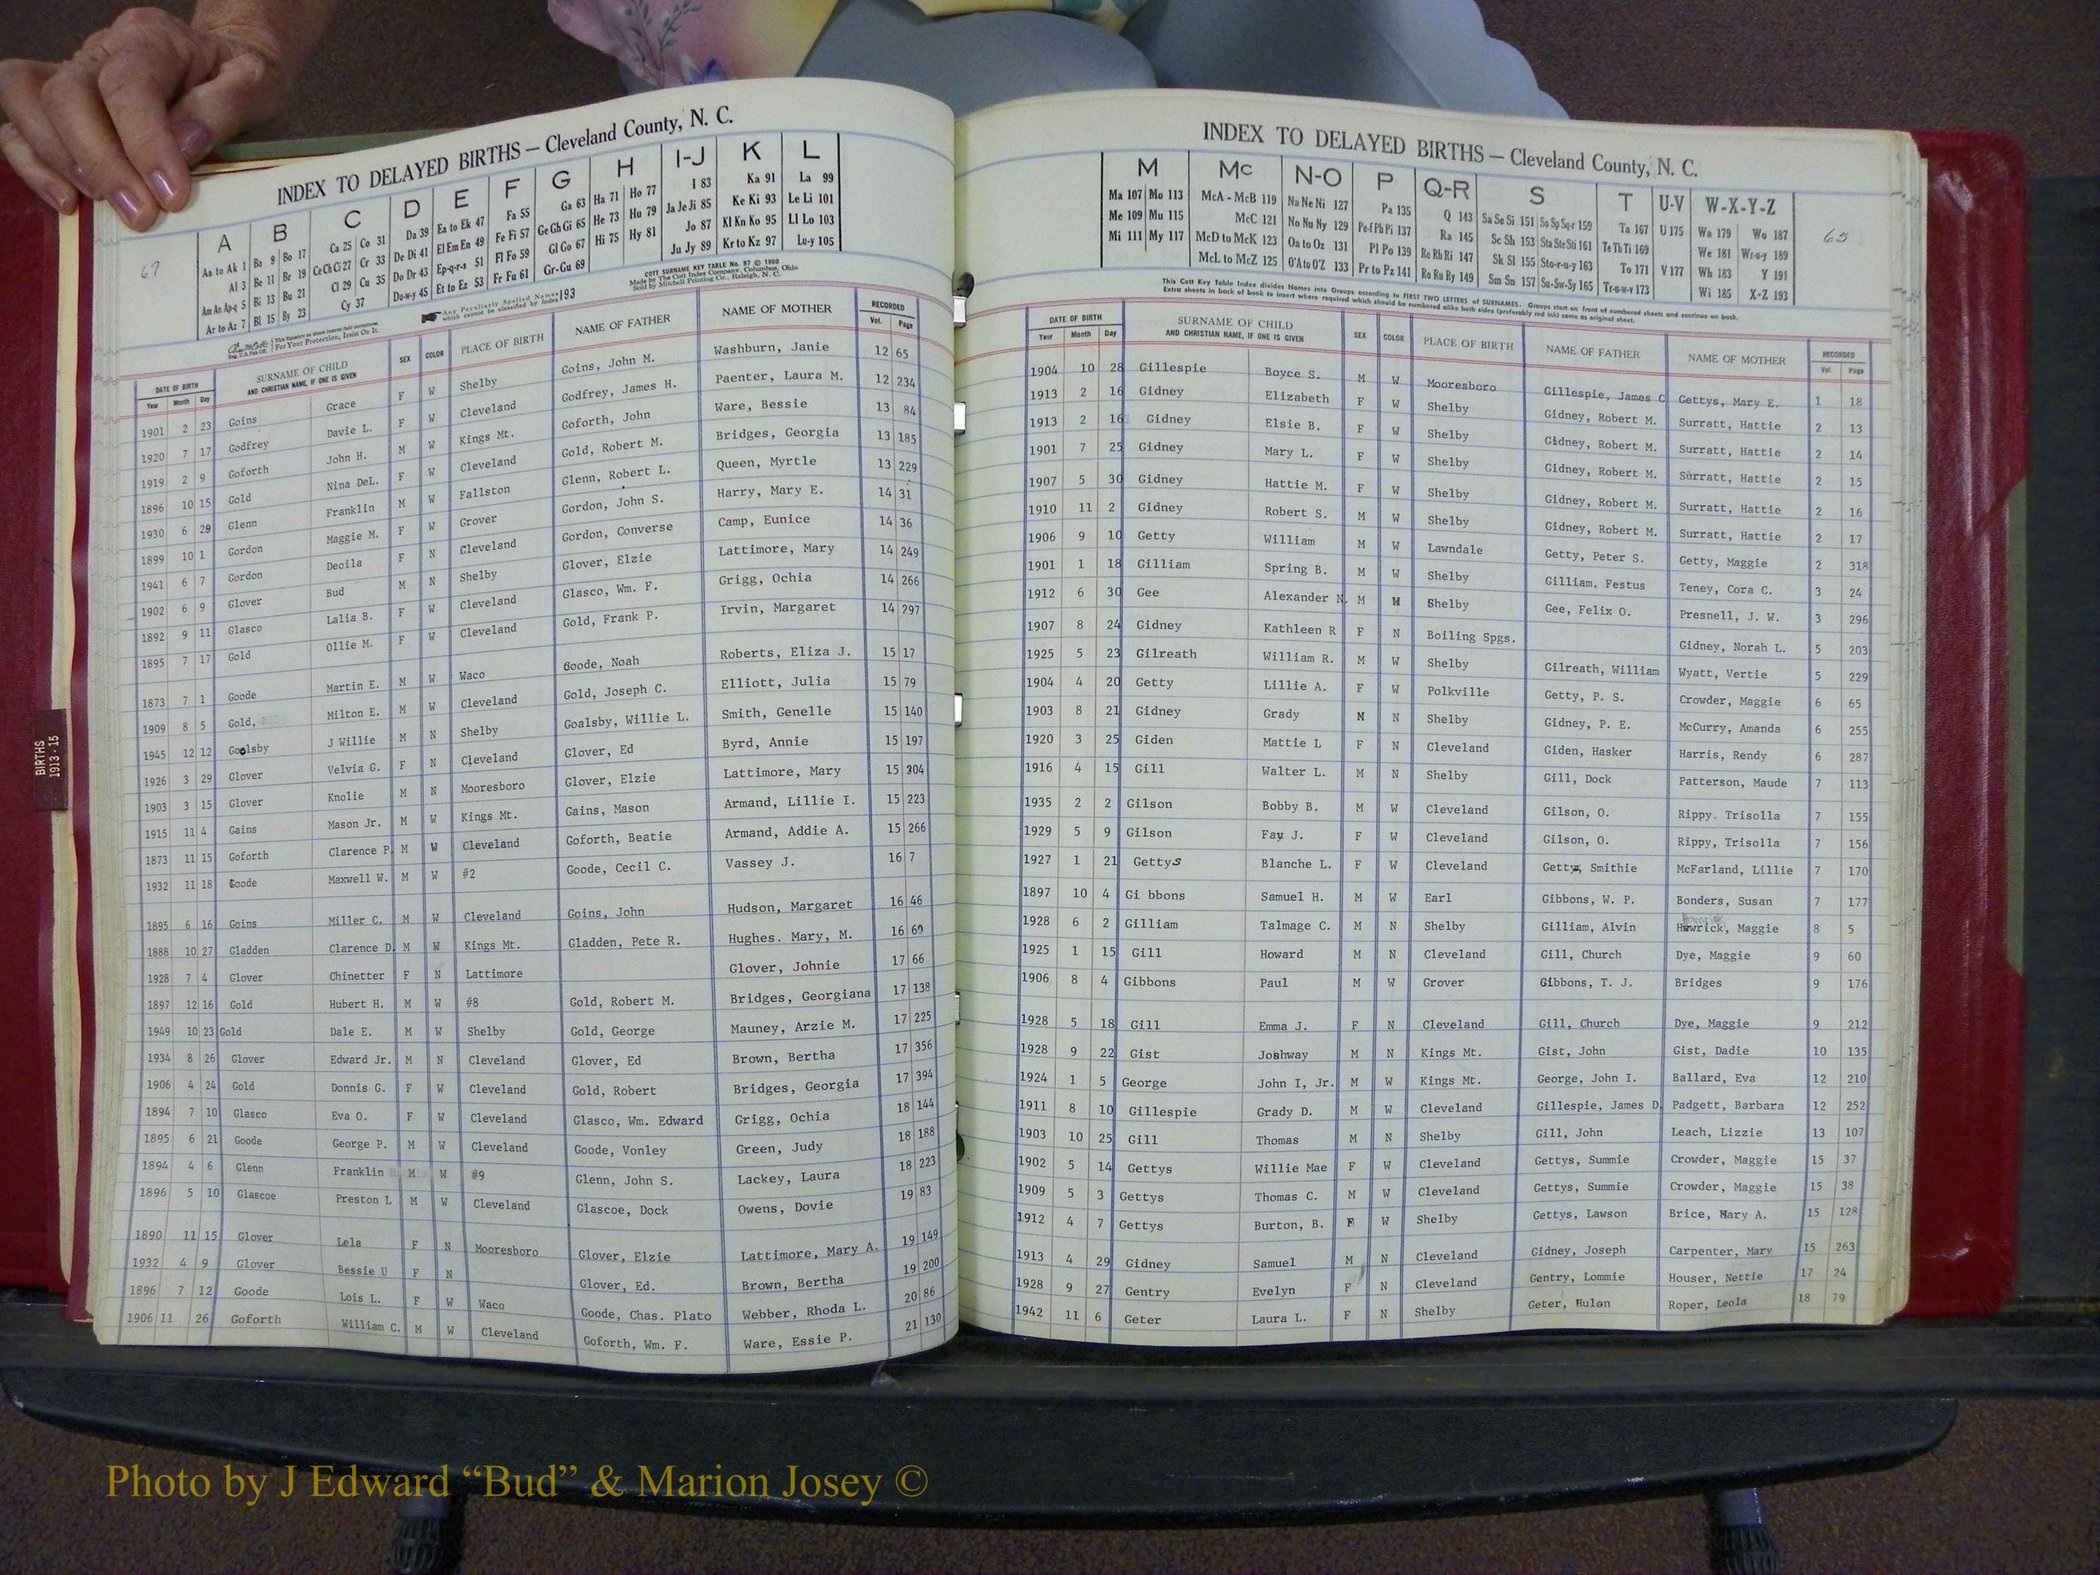 INDEX TO DELAYED BIRTHS — Cleveland County, N. C.
A B C D E F G H I-J K L
67
Aa to Ak 1 Ba 9 Bo 17 Ca 25 Co 31 Da 39 Ea to Ek 47 Fa 55 Ga 63 Ha 71 Ho 77 I 83 Ka 91 La 99
Al 3 Be 11 Br 19 Ce Ch Ci 27 Cr 33 De Di 41 El Em En 49 Fe Fi 57 Ge Gh Gi 65 He 73 Hu 79 Ja Je Ji 85 Ke Ki 93 Le Li 101
Am An Ap-q 5 Bi 13 Bu 21 Cl 29 Cu 35 Do Dr 43 Ep-q-r-s 51 Fl Fo 59 Gl Go 67 Hi 75 Hy 81 Jo 87 Kl Kn Ko 95 Ll Lo 103
Ar to Az 7 Bl 15 By 23 Cy 37 Du-w-y 45 Et to Ez 53 Fr Fu 61 Gr-Gu 69 Ju Jy 89 Kr to Kz 97 Lu-y 105
For Your Protection, Insist On It.
Any Peculiarly Spelled Names which cannot be classified by index 193
COTT SURNAME KEY TABLE No. 97 © 1980
Made by The Cott Index Company, Columbus, Ohio
Sold by Mitchell Printing Co., Raleigh, N. C.
DATE OF BIRTH SURNAME OF CHILD AND CHRISTIAN NAME, IF ONE IS GIVEN SEX COLOR PLACE OF BIRTH NAME OF FATHER NAME OF MOTHER RECORDED
Year Month Day Vol. Page
1901 2 23 Goins Grace F W Shelby Goins, John M. Washburn, Janie 12 65
1920 7 17 Godfrey Davie L. F W Cleveland Godfrey, James H. Paenter, Laura M. 12 234
1919 2 9 Goforth John H. M W Kings Mt. Goforth, John Ware, Bessie 13 84
1896 10 15 Gold Nina DeL. F W Cleveland Gold, Robert M. Bridges, Georgia 13 185
1930 6 28 Glenn Franklin M W Fallston Glenn, Robert L. Queen, Myrtle 13 229
1899 10 1 Gordon Maggie M. F W Grover Gordon, John S. Harry, Mary E. 14 31
1941 6 7 Gordon Deoila F N Cleveland Gordon, Converse Camp, Eunice 14 36
1902 6 9 Glover Bud M N Shelby Glover, Elzie Lattimore, Mary 14 249
1892 9 11 Glasco Lalia B. F W Cleveland Glasco, Wm. F. Grigg, Ochia 14 266
1895 7 17 Gold Ollie M. F W Cleveland Gold, Frank P. Irvin, Margaret 14 297
1873 7 1 Goode Martin E. M W Waco Goode, Noah Roberts, Eliza J. 15 17
1909 8 5 Gold, Milton E. M W Cleveland Gold, Joseph C. Elliott, Julia 15 79
1945 12 12 Goolsby J Willie M N Shelby Goalsby, Willie L. Smith, Genelle 15 140
1926 3 29 Glover Velvia G. F N Cleveland Glover, Ed Byrd, Annie 15 197
1903 3 15 Glover Knolie M N Mooresboro Glover, Elzie Lattimore, Mary 15 304
1915 11 4 Gains Mason Jr. M W Kings Mt. Gains, Mason Armand, Lillie I. 15 223
1873 11 15 Goforth Clarence P. M W Cleveland Goforth, Beatie Armand, Addie A. 15 266
1932 11 18 Goode Maxwell W. M W #2 Goode, Cecil C. Vassey J. 16 7
1895 6 16 Goins Miller C. M W Cleveland Goins, John Hudson, Margaret 16 46
1888 10 27 Gladden Clarence D. M W Kings Mt. Gladden, Pete R. Hughes. Mary, M. 16 60
1928 7 4 Glover Chinetter F N Lattimore Glover, Johnie 17 66
1897 12 16 Gold Hubert H. M W #8 Gold, Robert M. Bridges, Georgiana 17 138
1949 10 23 Gold Dale E. M W Shelby Gold, George Mauney, Arzie M. 17 225
1934 8 26 Glover Edward Jr. M N Cleveland Glover, Ed Brown, Bertha 17 356
1906 4 24 Gold Donnis G. F W Cleveland Gold, Robert Bridges, Georgia 17 394
1894 7 10 Glasco Eva O. F W Cleveland Glasco, Wm. Edward Grigg, Ochia 18 144
1895 6 21 Goode George P. M W Cleveland Goode, Vonley Green, Judy 18 188
1894 4 6 Glenn Franklin M W #9 Glenn, John S. Lackey, Laura 18 223
1896 5 10 Glascoe Preston L M W Cleveland Glascoe, Dock Owens, Dovie 19 83
1890 11 15 Glover Lela F N Mooresboro Glover, Elzie Lattimore, Mary A. 19 149
1932 4 9 Glover Bessie U F N Glover, Ed. Brown, Bertha 19 200
1896 7 12 Goode Lois L. F W Waco Goode, Chas. Plato Webber, Rhoda L. 20 86
1906 11 26 Goforth William C. M W Cleveland Goforth, Wm. F. Ware, Essie P. 21 130
INDEX TO DELAYED BIRTHS — Cleveland County, N. C.
M Mc N-O P Q-R S T U-V W-X-Y-Z
65
Ma 107 Mo 113 McA - McB 119 Na Ne Ni 127 Pa 135 Q 143 Sa Se Si 151 So Sp Sq-r 159 Ta 167 U 175 Wa 179 Wo 187
Me 109 Mu 115 McC 121 No Nu Ny 129 Pe-f Ph Pi 137 Ra 145 Sc Sh 153 Sta Ste Sti 161 Te Th Ti 169 We 181 Wr-u-y 189
Mi 111 My 117 McD to McK 123 Oa to Oz 131 Pl Po 139 Re Rh Ri 147 Sk Sl 155 Sto-r-u-y 163 To 171 V 177 Wh 183 Y 191
McL to McZ 125 O'A to O'Z 133 Pr to Pz 141 Ro Ru Ry 149 Sm Sn 157 Su-Sw-Sy 165 Tr-u-w-y 173 Wi 185 X-Z 193
This Cott Key Table Index divides Names into Groups according to FIRST TWO LETTERS of SURNAMES. Groups start on front of numbered sheets and continue on back.
Extra sheets in back of book to insert where required which should be numbered alike both sides (preferably red ink) same as original sheet.
DATE OF BIRTH SURNAME OF CHILD AND CHRISTIAN NAME, IF ONE IS GIVEN SEX COLOR PLACE OF BIRTH NAME OF FATHER NAME OF MOTHER RECORDED
Year Month Day Vol. Page
1904 10 28 Gillespie Boyce S. M W Mooresboro Gillespie, James C Gettys, Mary E. 1 18
1913 2 16 Gidney Elizabeth F W Shelby Gidney, Robert M. Surratt, Hattie 2 13
1913 2 16 Gidney Elsie B. F W Shelby Gidney, Robert M. Surratt, Hattie 2 14
1901 7 25 Gidney Mary L. F W Shelby Gidney, Robert M. Surratt, Hattie 2 15
1907 5 30 Gidney Hattie M. F W Shelby Gidney, Robert M. Surratt, Hattie 2 16
1910 11 2 Gidney Robert S. M W Shelby Gidney, Robert M. Surratt, Hattie 2 17
1906 9 10 Getty William M W Lawndale Getty, Peter S. Getty, Maggie 2 318
1901 1 18 Gilliam Spring B. M W Shelby Gilliam. Festus Teney, Cora C. 3 24
1912 6 30 Gee Alexander N. M Shelby Gee, Felix O. Presnell, J. W. 3 296
1907 8 24 Gidney Kathleen R F N Boiling Spgs. Gidney, Norah L. 5 203
1925 5 23 Gilreath William R. M W Shelby Gilreath, William Wyatt, Vertie 5 229
1904 4 20 Getty Lillie A. F W Polkville Getty, P. S. Crowder, Maggie 6 65
1903 8 21 Gidney Grady M N Shelby Gidney, P. E. McCurry, Amanda 6 255
1920 3 25 Giden Mattie L F N Cleveland Giden, Hasker Harris, Rendy 6 287
1916 4 15 Gill Walter L. M N Shelby Gill, Dock Patterson, Maude 7 113
1935 2 2 Gilson Bobby B. M W Cleveland Gilson, O. Rippy. Trisolla 7 155
1929 5 9 Gilson Fay J. F W Cleveland Gilson, O. Rippy, Trisolla 7 156
1927 1 21 Gettys Blanche L. F W Cleveland Gettys, Smithie McFarland, Lillie 7 170
1897 10 4 Gi bbons Samuel H. M W Earl Gibbons, W. P. Bonders, Susan 7 177
1928 6 2 Gilliam Talmage C. M N Shelby Gilliam, Alvin Maggie 8 5
1925 1 15 Gill Howard M N Cleveland Gill, Church Dye, Maggie 9 60
1906 8 4 Gibbons Paul M W Grover Gibbons, T. J. Bridges 9 176
1928 5 18 Gill Emma J. F N Cleveland Gill, Church Dye, Maggie 9 212
1928 9 22 Gist Joshway M N Kings Mt. Gist, John Gist, Dadie 10 135
1924 1 5 George John I, Jr. M W Kings Mt. George, John I. Ballard, Eva 12 210
1911 8 10 Gillespie Grady D. M W Cleveland Gillespie, James D. Padgett, Barbara 12 252
1903 10 25 Gill Thomas M N Shelby Gill, John Leach, Lizzie 13 107
1902 5 14 Gettys Willie Mae F W Cleveland Gettys, Summie Crowder, Maggie 15 37
1909 5 3 Gettys Thomas C. M W Cleveland Gettys, Summie Crowder, Maggie 15 38
1912 4 7 Gettys Burton, B. W Shelby Gettys, Lawson Brice, Mary A. 15 128
1913 4 29 Gidney Samuel M N Cleveland Gidney, Joseph Carpenter, Mary 15 263
1928 9 27 Gentry Evelyn F N Cleveland Gentry, Lommie Houser, Nettie 17 24
1942 11 6 Geter Laura L. F N Shelby Geter, Hulon Roper, Leola 18 79
BIRTHS
1913 - 15
Photo by J Edward “Bud” & Marion Josey ©